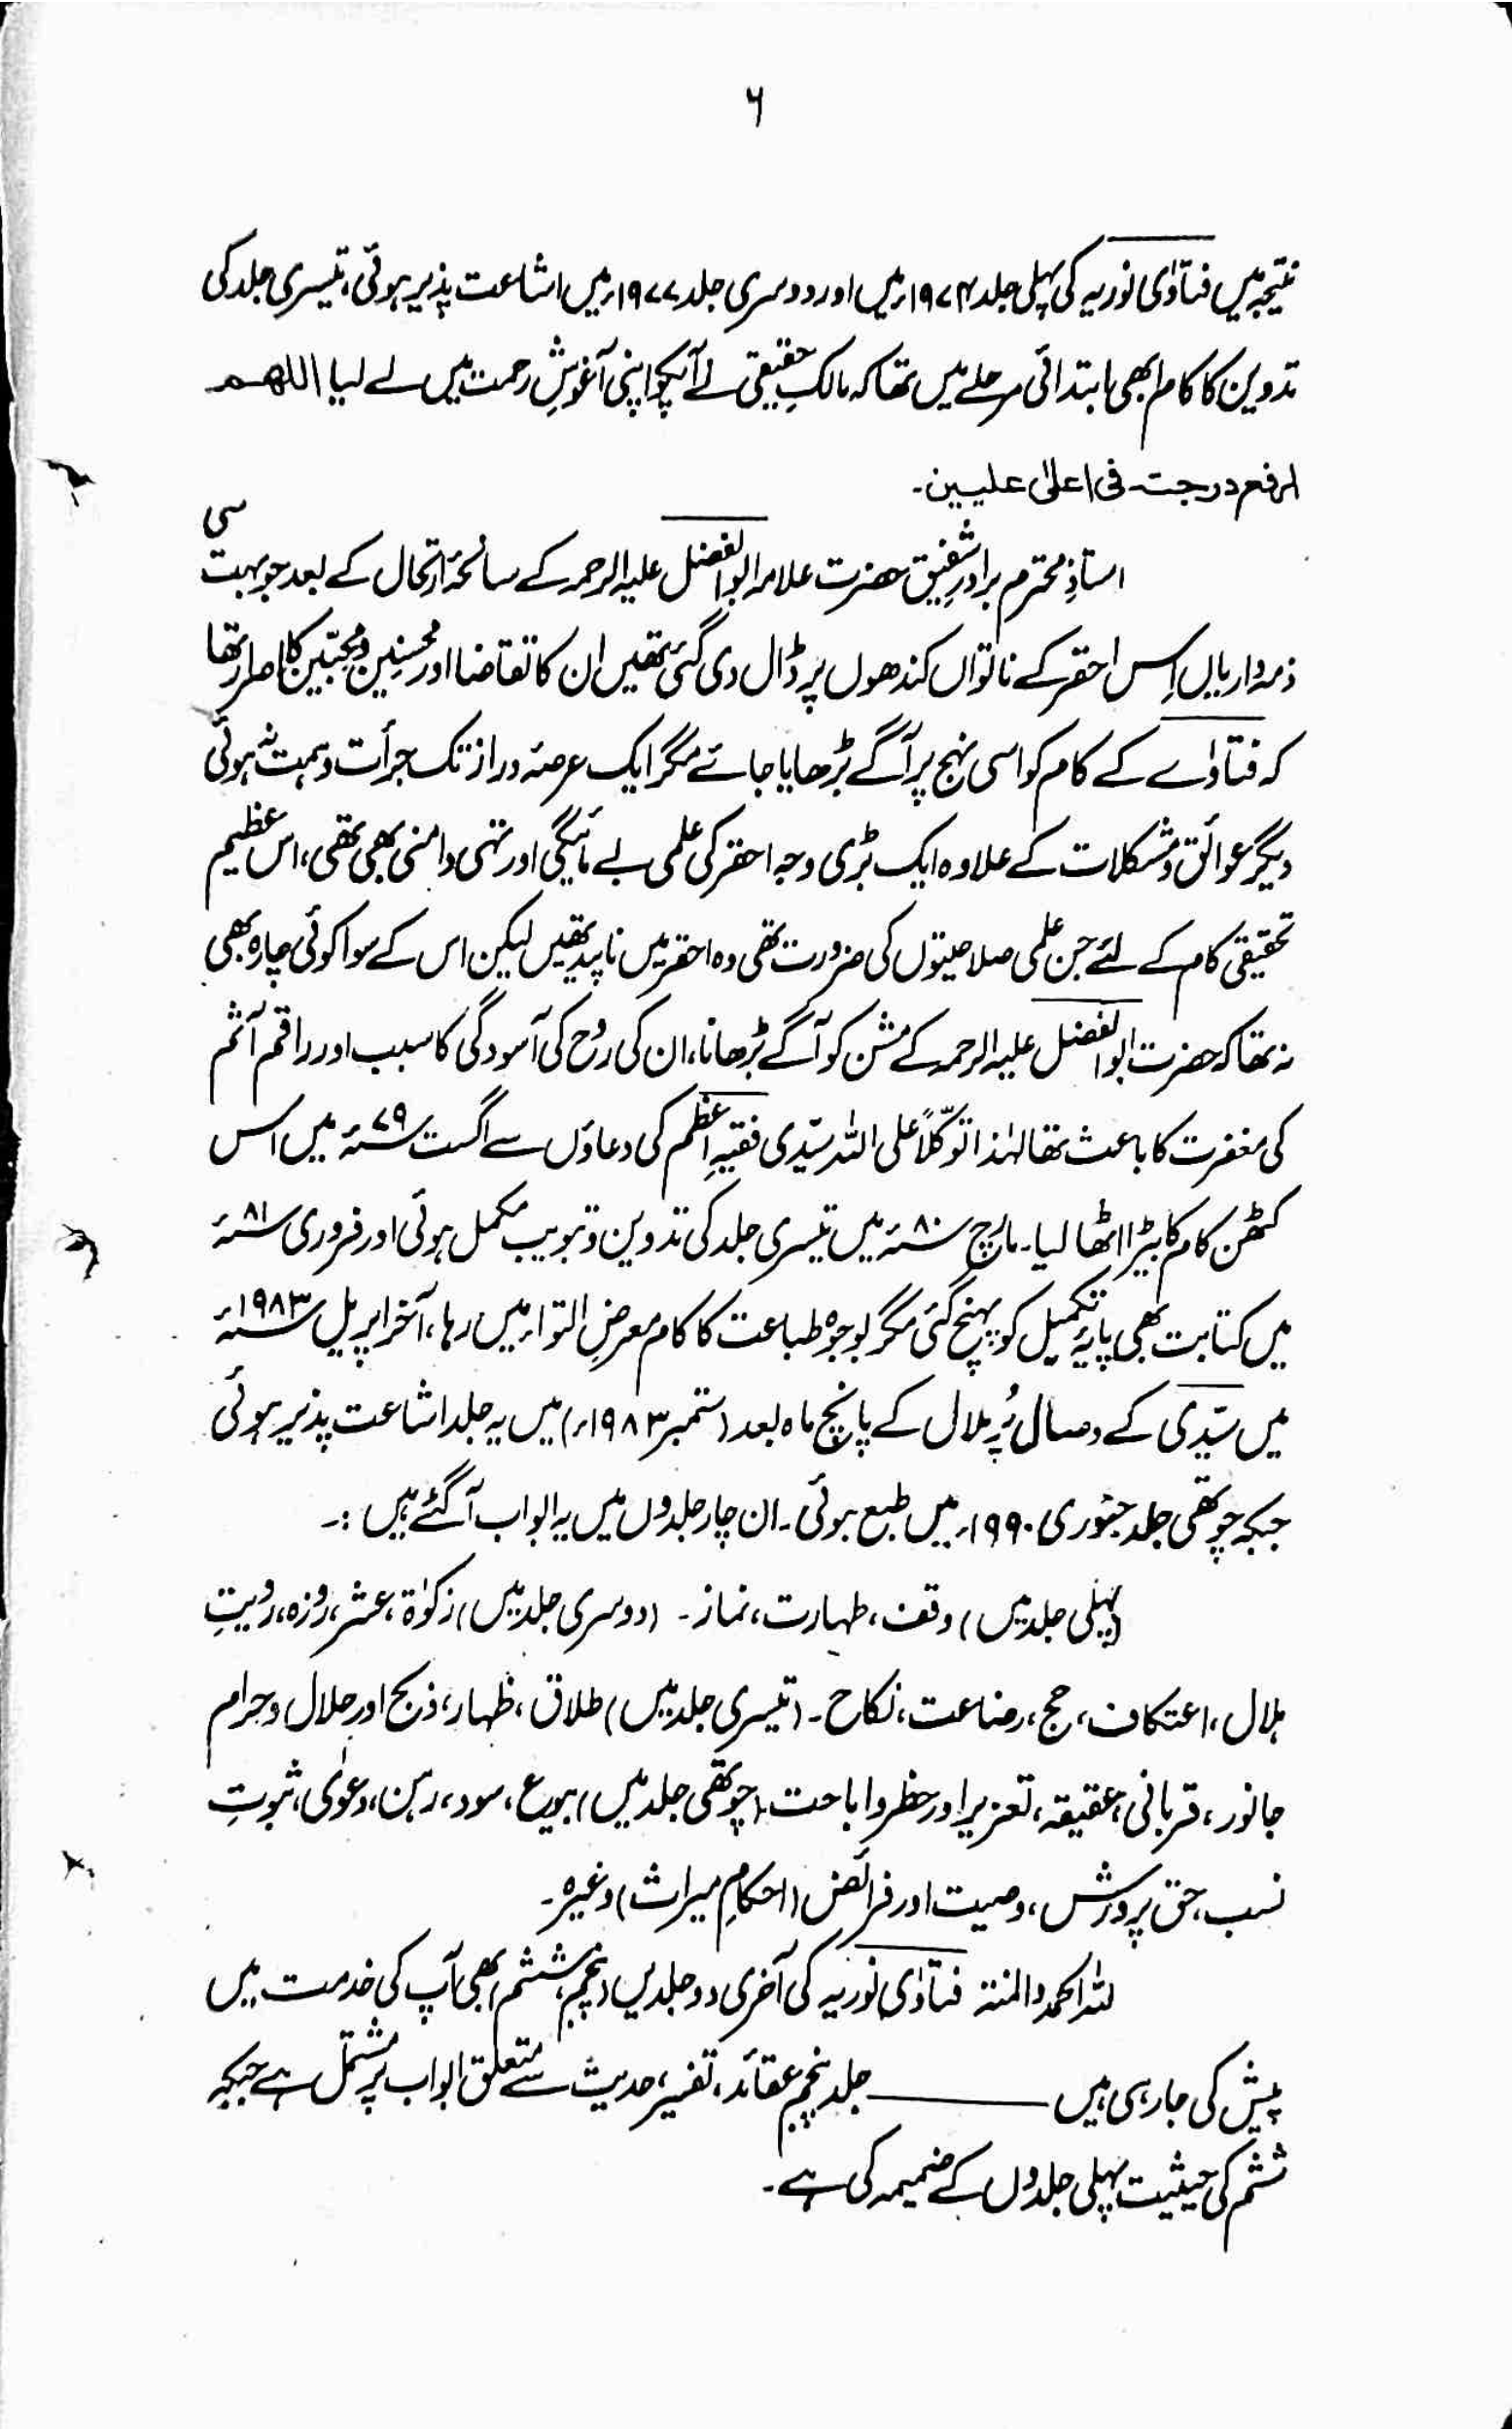 ۶
نتیجہ میں فتاوٰی نوریہ کی پہلی جلد ۱۹۷۴ء میں اور دوسری جلد ۱۹۷۷ء میں اشاعت پذیر ہوئی، تیسری جلد کی
تدوین کا کام ابھی ابتدائی مرحلے میں تھا کہ مالکِ حقیقی نے آپکو اپنی آغوشِ رحمت میں لے لیا اللھم
ارفع درجتہ فی اعلیٰ علیین۔
استاذِ محترم برادرِ شفیق حضرت علامہ ابوالفضل علیہ الرحمہ کے سانحۂ ارتحال کے بعد جو بہت سی
ذمہ داریاں اِس احقر کے ناتواں کندھوں پر ڈال دی گئی تھیں ان کا تقاضا اور محسنین و محبّین کا اصرار تھا
کہ فتاوٰے کے کام کو اسی نہج پر آگے بڑھایا جائے مگر ایک عرصۂ دراز تک جرأت و ہمت نہ ہوئی
دیگر عوائق و مشکلات کے علاوہ ایک بڑی وجہ احقر کی علمی بے مائیگی اور تہی دامنی بھی تھی، اس عظیم
تحقیقی کام کے لئے جن علمی صلاحیتوں کی ضرورت تھی وہ احقر میں ناپید تھیں لیکن اس کے سوا کوئی چارہ بھی
نہ تھا کہ حضرت ابوالفضل علیہ الرحمہ کے مشن کو آگے بڑھانا، ان کی رُوح کی آسودگی کا سبب اور راقم آثم
کی مغفرت کا باعث تھا لہٰذا توکّلاً علی اللہ سیّدی فقیہِ اعظم کی دعاؤں سے اگست ۷۹ء میں اس
کٹھن کام کا بیڑا اٹھا لیا۔ مارچ ۸۰ء میں تیسری جلد کی تدوین و تبویب مکمل ہوئی اور فروری ۸۱ء
میں کتابت بھی پایۂ تکمیل کو پہنچ گئی مگر بوجوہ طباعت کا کام معرضِ التواء میں رہا، آخر اپریل ۱۹۸۳ء
میں سیّدی کے وصال پُر ملال کے پانچ ماہ بعد (ستمبر ۱۹۸۳ء) میں یہ جلد اشاعت پذیر ہوئی
جبکہ چوتھی جلد جنوری ۱۹۹۰ء میں طبع ہوئی۔ ان چار جلدوں میں یہ ابواب آ گئے ہیں :۔
(پہلی جلد میں) وقف، طہارت، نماز۔ (دوسری جلد میں) زکوٰۃ، عشر، روزہ، رویتِ
ہلال، اعتکاف، حج، رضاعت، نکاح۔ (تیسری جلد میں) طلاق، ظہار، ذبح اور حلال و حرام
جانور، قربانی، عقیقہ، تعزیر اور حظر و اباحت۔ (چوتھی جلد میں) بیوع، سود، رہن، دعوٰی، ثبوتِ
نسب، حق پرورش، وصیت اور فرائض (احکامِ میراث) وغیرہ۔
للہ الحمد والمنۃ فتاوٰی نوریہ کی آخری دو جلدیں (پنجم، ششم) بھی آپ کی خدمت میں
پیش کی جارہی ہیں ——— جلد پنجم عقائد، تفسیر، حدیث سے متعلق ابواب پر مشتمل ہے جبکہ
ششم کی حیثیت پہلی جلدوں کے ضمیمہ کی ہے۔